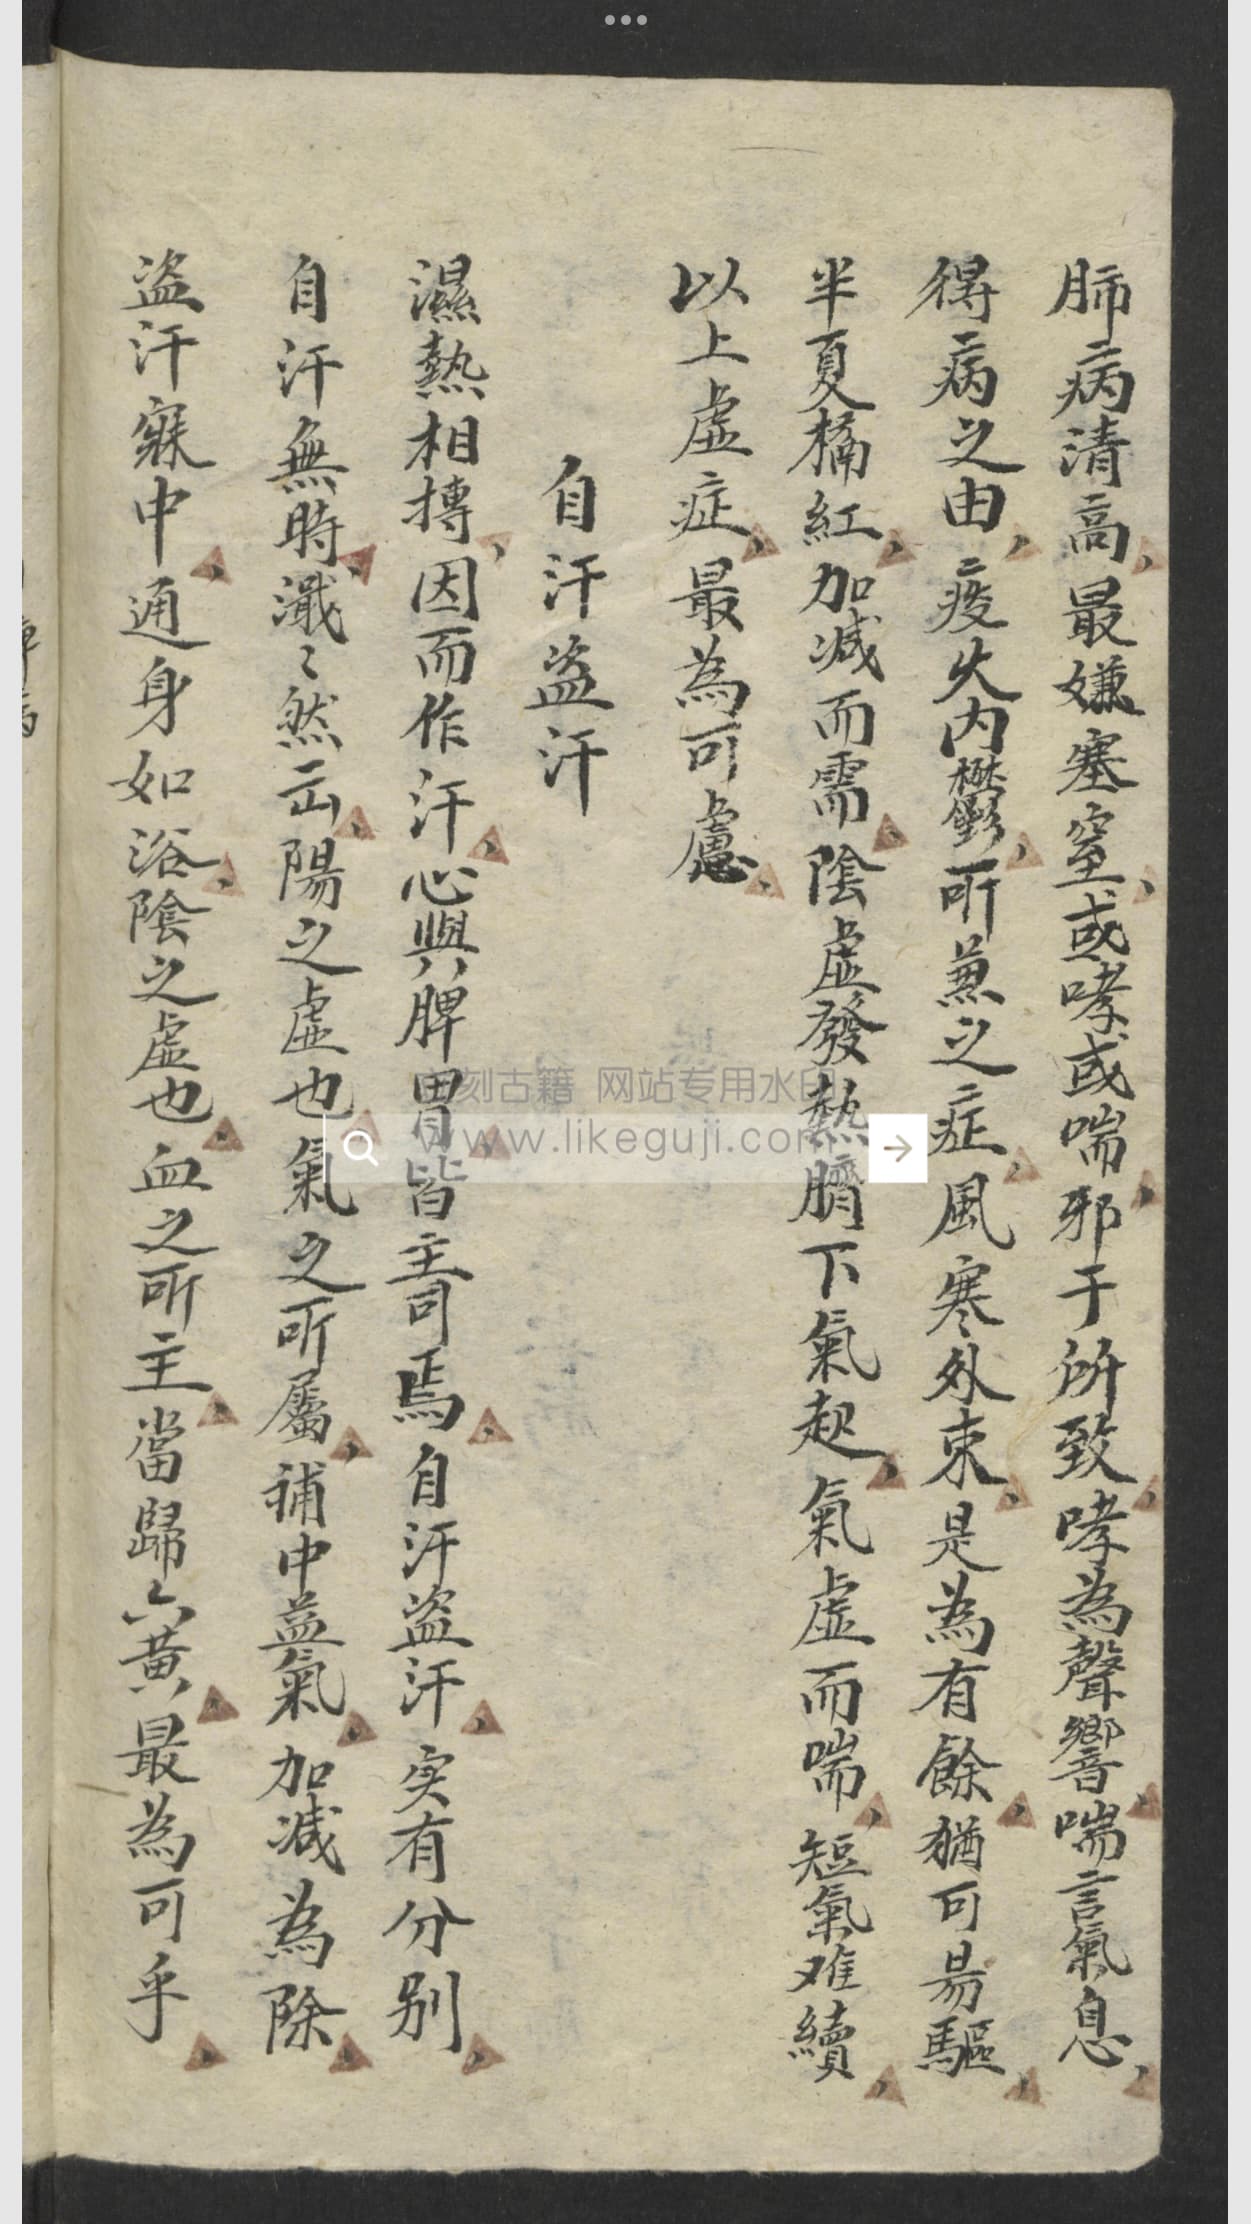 肺病清高最嫌塞窒或哮或喘邪于所致哮為聲響喘言氣息
得病之由痰火內鬱所兼之症風寒外束是為有餘猶可易驅
半夏橘紅加减而需陰虛發熱臍下氣起氣虛而喘短氣难續
以上虛症最為可慮
自汗盗汗
濕熱相搏因而作汗心與脾胃皆主司焉自汗盗汗实有分别
自汗無時濈〻然出陽之虛也氣之所屬補中益氣加减為除
盗汗寐中通身如浴陰之虛也血之所主當歸六黄最為可乎
刻古籍 网站专用水印
www.likeguji.com